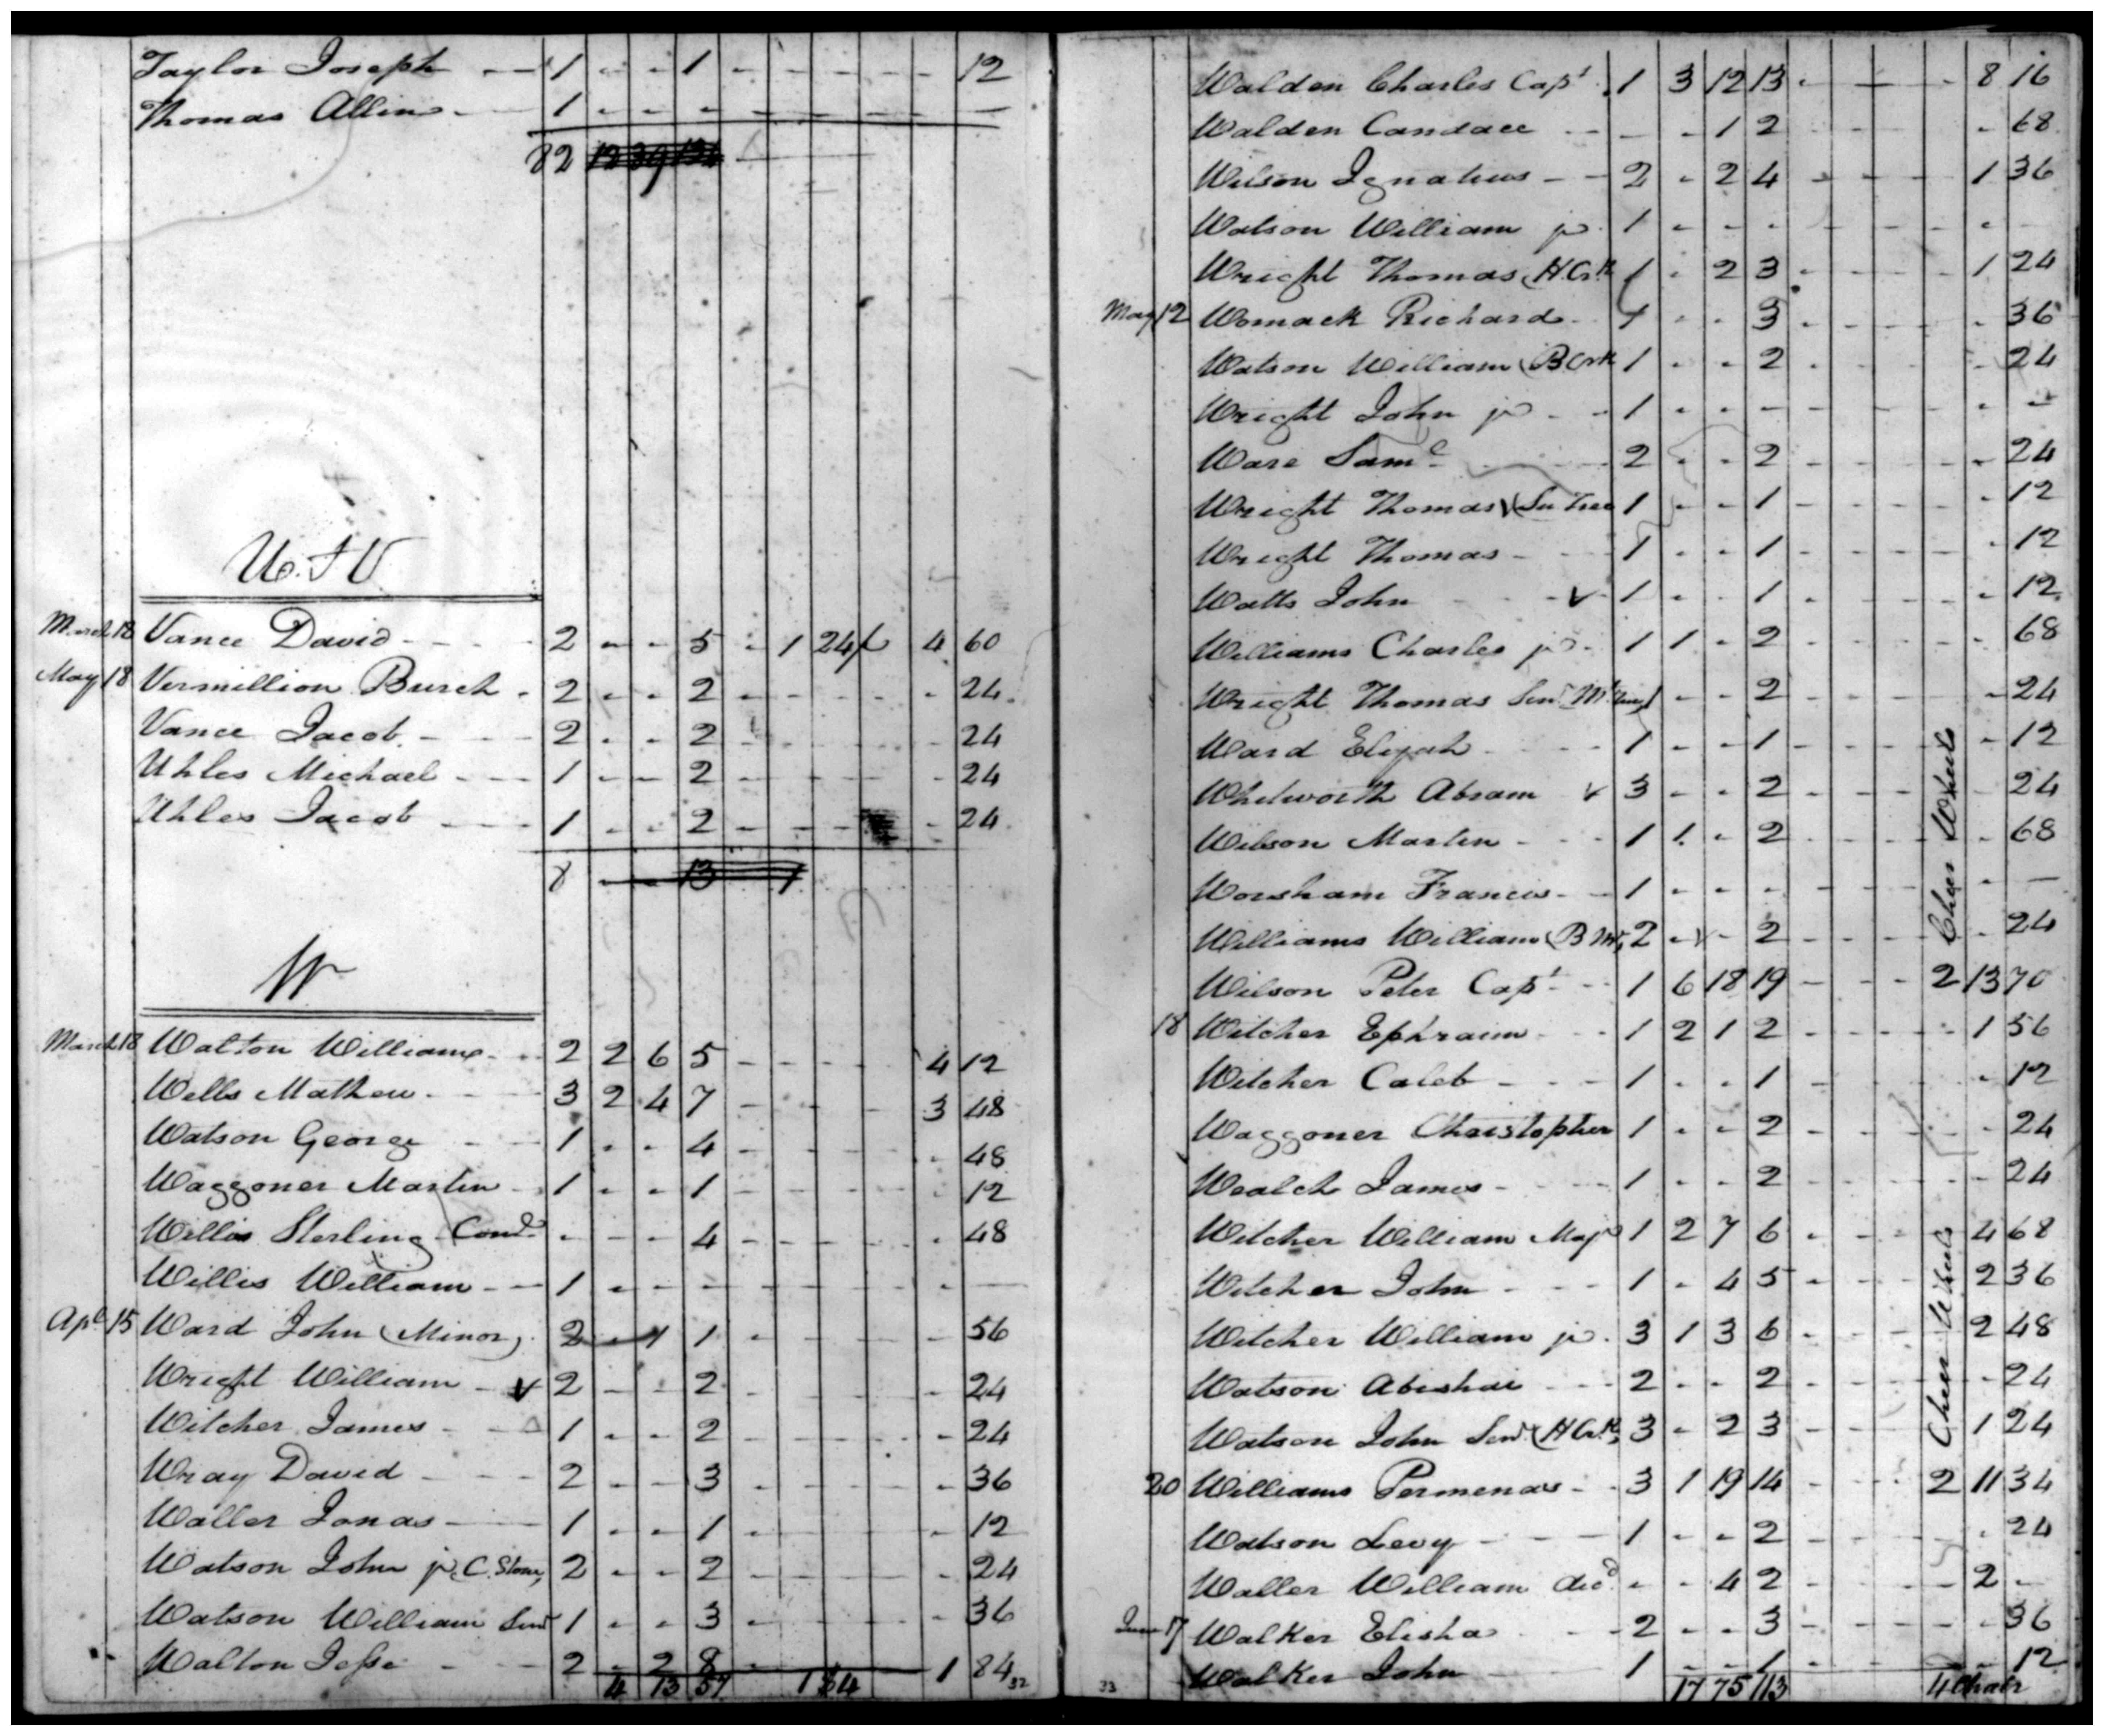 Taylor Joseph - 1 - - 1 - - - - - 12
Thomas Allin - 1 - - - - - - - - -
82 12 39 134
U. & V
March 18 Vance David - - 2 - - 5 - 1 24 4 60
May 18 Vermillion Burch - 2 - - 2 - - - - - 24
Vance Jacob - - 2 - - 2 - - - - - 24
Uhles Michael - - 1 - - 2 - - - - - 24
Uhles Jacob - - 1 - - 2 - - - - 24
8 - - 13 1
W
March 18 Walton William - - 2 2 6 5 - - - - 4 12
Wells Mathew - - 3 2 4 7 - - - - 3 48
Watson George - - 1 - - 4 - - - - - 48
Waggoner Martin - 1 - - 1 - - - - - 12
Willis Sterling Cond - - - 4 - - - - - 48
Willis William - - 1 - - - - - - - - -
Apl 15 Ward John (Minor) - 2 - 1 1 - - - - - 56
Wright William - v 2 - - 2 - - - - - 24
Witcher James - - 1 - - 2 - - - - - 24
Wray David - - - 2 - - 3 - - - - - 36
Waller Jonas - - 1 - - 1 - - - - - 12
Watson John jr C. Stone, 2 - - 2 - - - - - 24
Watson William Senr 1 - - 3 - - - - - 36
Walton Jesse - - 2 - 2 8 - - - - 1 84
4 13 57 1 84 32
Walden Charles Capt. 1 3 12 13 - - - - 8 16
Walden Candace - - - - 1 2 - - - - - 68
Wilson Ignatius - - 2 - 2 4 - - - - 1 36
Watson William jr. 1 - - - - - - - - -
Wright Thomas (H.Crk 1 - 2 3 - - - - 1 24
May 12 Womack Richard - 1 - - 3 - - - - - 36
Watson William (B Crk 1 - - 2 - - - - - 24
Wright John jr - - 1 - - - - - - - - -
Ware Saml - - 2 - - 2 - - - - - 24
Wright Thomas 1 - - 1 - - - - - 12
Wright Thomas - - 1 - - 1 - - - - - 12
Watts John - - v 1 - - 1 - - - - - 12
Williams Charles jr - 1 1 - 2 - - - - - 68
Wright Thomas Senr - - 2 - - - - - 24
Ward Elijah - - - 1 - - 1 - - - - - 12
Whitworth Abram v 3 - - 2 - - - - - 24
Wilson Martin - - - 1 1 - 2 - - - - - 68
Worsham Francis - - 1 - - - - - - - - -
Williams William 2 - v - 2 - - - - - 24
Wilson Peter Capt - - 1 6 18 19 - - - 2 13 70
Chair Wheels
18 Witcher Ephraim - - 1 2 1 2 - - - - 1 56
Witcher Caleb - - - 1 - - 1 - - - - - 12
Waggoner Christopher 1 - - 2 - - - - - 24
Wealch James - - - 1 - - 2 - - - - - 24
Witcher William Majr 1 2 7 6 - - - 4 68
Witcher John - - - 1 - 4 5 - - - 2 36
Witcher William jr. 3 1 3 6 - - - 2 48
Watson Abishai - - - 2 - - 2 - - - - 24
Watson John Senr (H Crk, 3 - 2 3 - - - 1 24
20 Williams Permenas - - 3 1 19 14 - - - 2 11 34
Chair Wheels
Watson Levy - - - 1 - - 2 - - - - - 24
Waller William decd. - - 4 2 - - - - 2 -
June 17 Walker Elisha - - - 2 - - 3 - - - - - 36
Walker John - - 1 - - 1 - - - - - 12
33 17 75 113 4 Chair